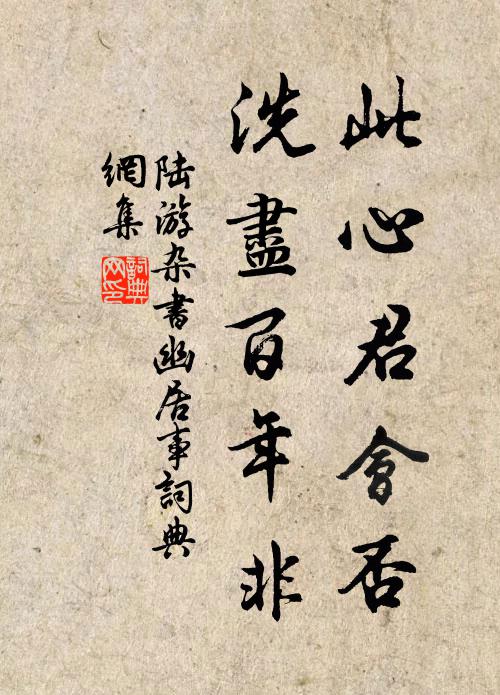 此心君會否
洗盡百年非
陆游杂書幽居事詞典
網集
詞典
网印